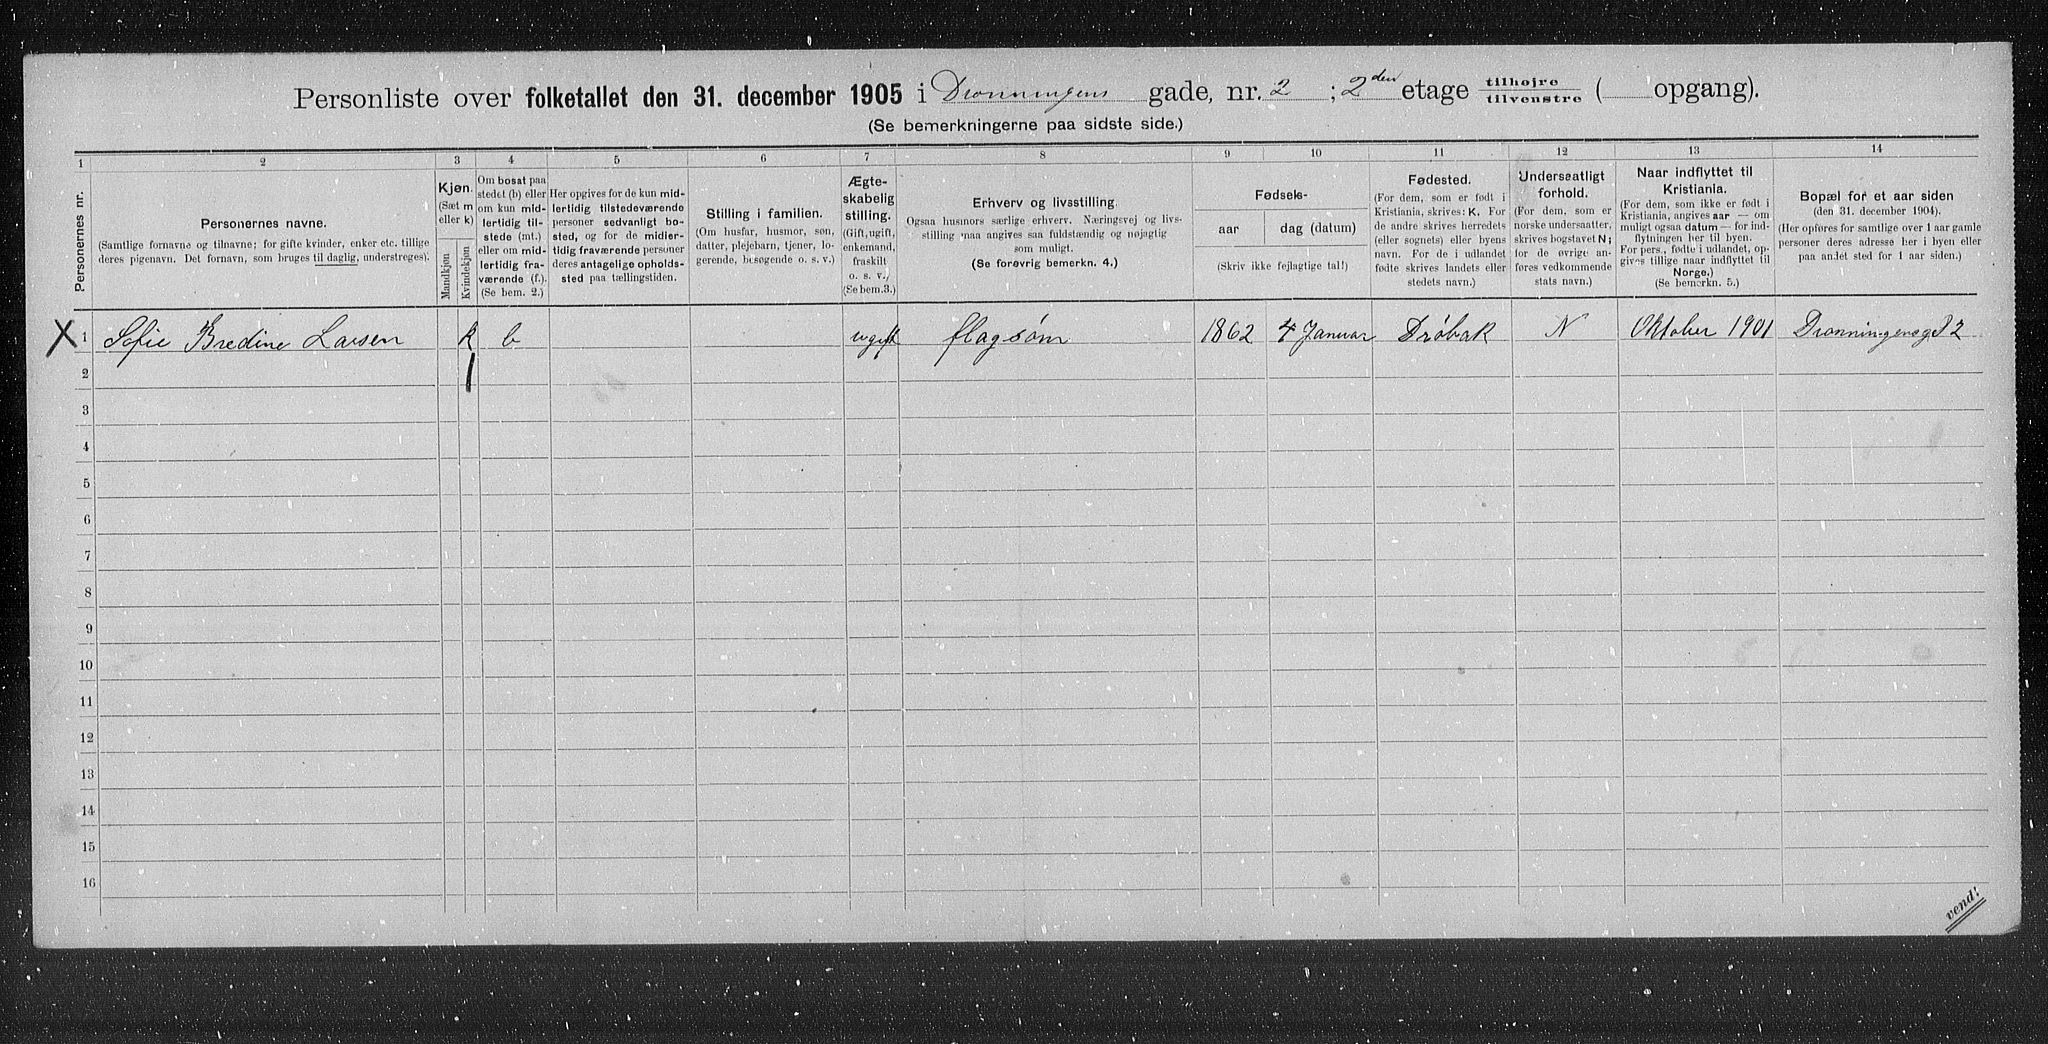 Personliste over folketallet den 31. december 1905 i Dronningens gade, nr. 2 ; 2den etage tilhøjre tilvenstre ( opgang).
(Se bemerkningerne paa sidste side.)
1 2 3 4 5 6 7 8 9 10 11 12 13 14
Personernes nr.
Personernes navne.
(Samtlige fornavne og tilnavne; for gifte kvinder, enker etc. tillige
deres pigenavn. Det fornavn, som bruges til daglig, understreges).
Kjøn.
(Sæt m
eller k)
Mandkjøn
Kvindekjøn
Om bosat paa
stedet (b) eller
om kun mid-
lertidig til-
stede (mt.)
eller om mid-
lertidig fra-
værende (f.).
(Se bem. 2.)
Her opgives for de kun mid-
lertidig tilstedeværende
personer sedvanligt bo-
sted, og for de midler-
tidig fraværende personer
deres antagelige opholds-
sted paa tællingstiden.
Stilling i familien.
(Om husfar, husmor, søn,
datter, plejebarn, tjener, lo-
gerende, besøgende o. s. v.)
Ægte-
skabelig
stilling.
(Gift, ugift,
enkemand,
fraskilt
o. s. v.)
(Se bem.3.)
Erhverv og livsstilling
Ogsaa husmors særlige erhverv. Næringsvej og livs-
stilling maa angives saa fuldstændig og nøjagtig
som muligt.
(Se forøvrig bemerkn. 4.)
Fødsels-
aar
dag (datum)
(Skriv ikke fejlagtige tal!)
Fødested.
(For dem, som er født i
Kristiania, skrives: K. For
de andre skrives herredets
(eller sognets) eller byens
navn. For de i udlandet
fødte skrives landets eller
stedets navn.)
Undersaatligt
forhold.
(For dem, som er
norske undersaatter,
skrives bogstavet N;
for de øvrige an-
føres vedkommende
stats navn.)
Naar indflyttet til
Kristiania.
(For dem, som ikke er født i
Kristiania, angives aar — om
muligt ogsaa datum — for ind-
flytningen her til byen.
For pers., fødte i udlandet, op-
gives tillige naar indflyttet til
Norge.)
(Se bemerkn. 5.)
Bopæl for et aar siden
(den 31. december 1904).
(Her opføres for samtlige over 1 aar gamle
personer deres adresse her i byen eller
paa andet sted for 1 aar siden.)
X 1 Sofie Bredine Larsen k b ugift flagsøm 1862 4 Januar Drøbak N Oktober 1901 Dronningensgd 2
2
3
4
5
6
7
8
9
10
11
12
13
14
15
16
vend!